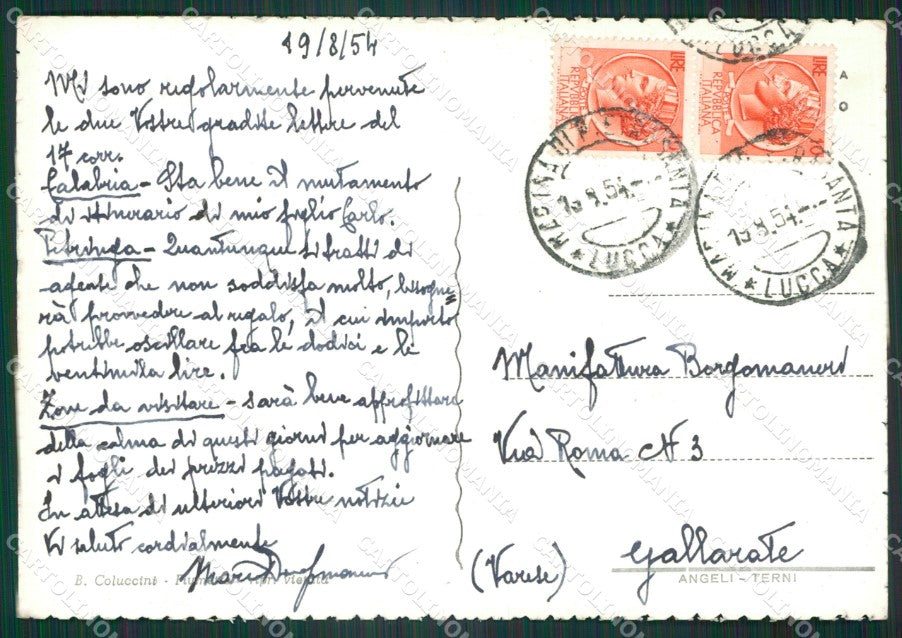 19/8/54
Mi sono regolarmente pervenute
le due Vostre gradite lettere del
17 corr.
Calabria - Sta bene il mutamento
di itinerario di mio figlio Carlo.
Petringa - Quantunque si tratti di
agente che non soddisfa molto, bisogne=
rà provvedere al regalo, il cui importo
potrebbe oscillare fra le dodici e le
ventimila lire.
Zone da visitare - sarà bene approfittare
della calma di questi giorni per aggiornare
i fogli dei prezzi pagati.
In attesa di ulteriori Vostre notizie
Vi saluto cordialmente
B. Coluccini
LIRE
REPUBBLICA
ITALIANA
LIRE
REPUBBLICA
ITALIANA
LUCCA
19.8.54
LUCCA
19.8.54
LUCCA
Manifattura Borgomaneri
Via Roma N 3
Gallarate
(Varese)
ANGELI - TERNI
CARTOLINOMANIA